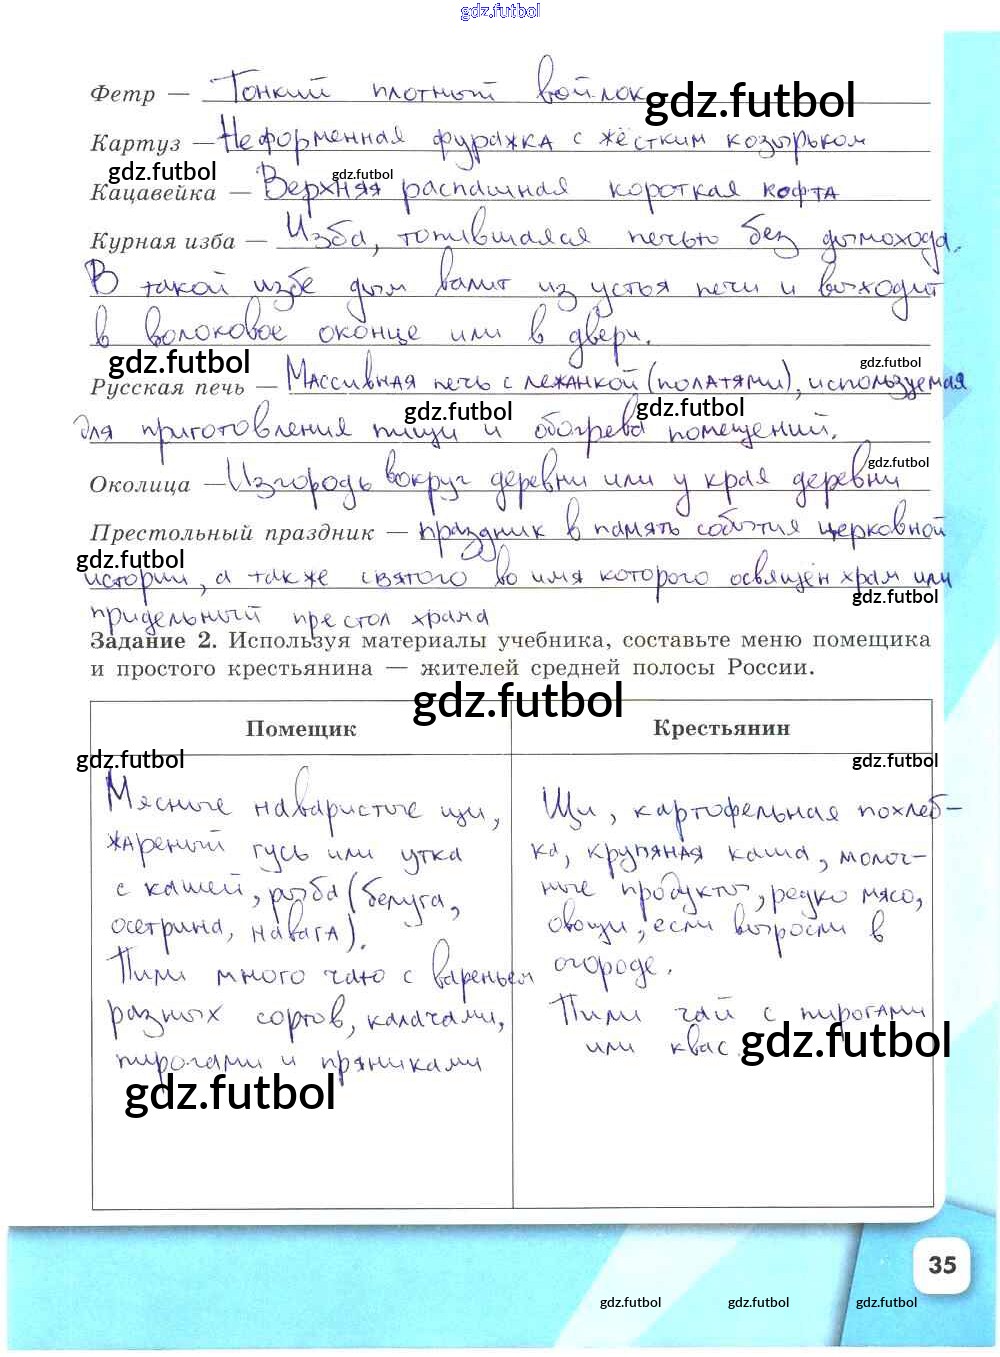 gdz.futbol
Фетр — Тонкий плотный войлок
gdz.futbol
Картуз — Неформенная фуражка с жёстким козырьком
gdz.futbol gdz.futbol
Кацавейка — Верхняя распашная короткая кофта
Курная изба — Изба, топившаяся печью без дымохода.
В такой избе дым валит из устья печи и выходит
в волоковое оконце или в двери.
gdz.futbol gdz.futbol
Русская печь — Массивная печь с лежанкой (полатями), используемая
gdz.futbol gdz.futbol
для приготовления пищи и обогрева помещений.
gdz.futbol
Околица — Изгородь вокруг деревни или у края деревни
Престольный праздник — праздник в память события церковной
gdz.futbol
истории, а также святого во имя которого освящён храм или
gdz.futbol
придельный престол храма
Задание 2. Используя материалы учебника, составьте меню помещика
и простого крестьянина — жителей средней полосы России.
gdz.futbol
Помещик
Крестьянин
gdz.futbol gdz.futbol
Мясные наваристые щи,
жареный гусь или утка
с кашей, рыба (белуга,
осетрина, навага).
Пили много чаю с вареньем
разных сортов, калачами,
пирогами и пряниками
gdz.futbol
Щи, картофельная похлеб-
ка, крупяная каша, молоч-
ные продукты, редко мясо,
овощи, если выросли в
огороде.
Пили чай с пирогами
или квас.
gdz.futbol
35
gdz.futbol gdz.futbol gdz.futbol